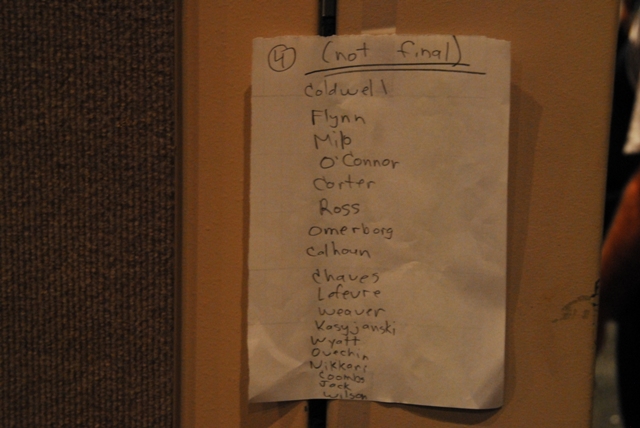 4 (not final)
Coldwell
Flynn
Milo
O'Connor
Corter
Ross
Omerborg
Calhoun
Chaves
Lefeure
Weaver
Kasyjanski
Wyatt
Ouechin
Nikkari
Coombs
Jack
Wilson